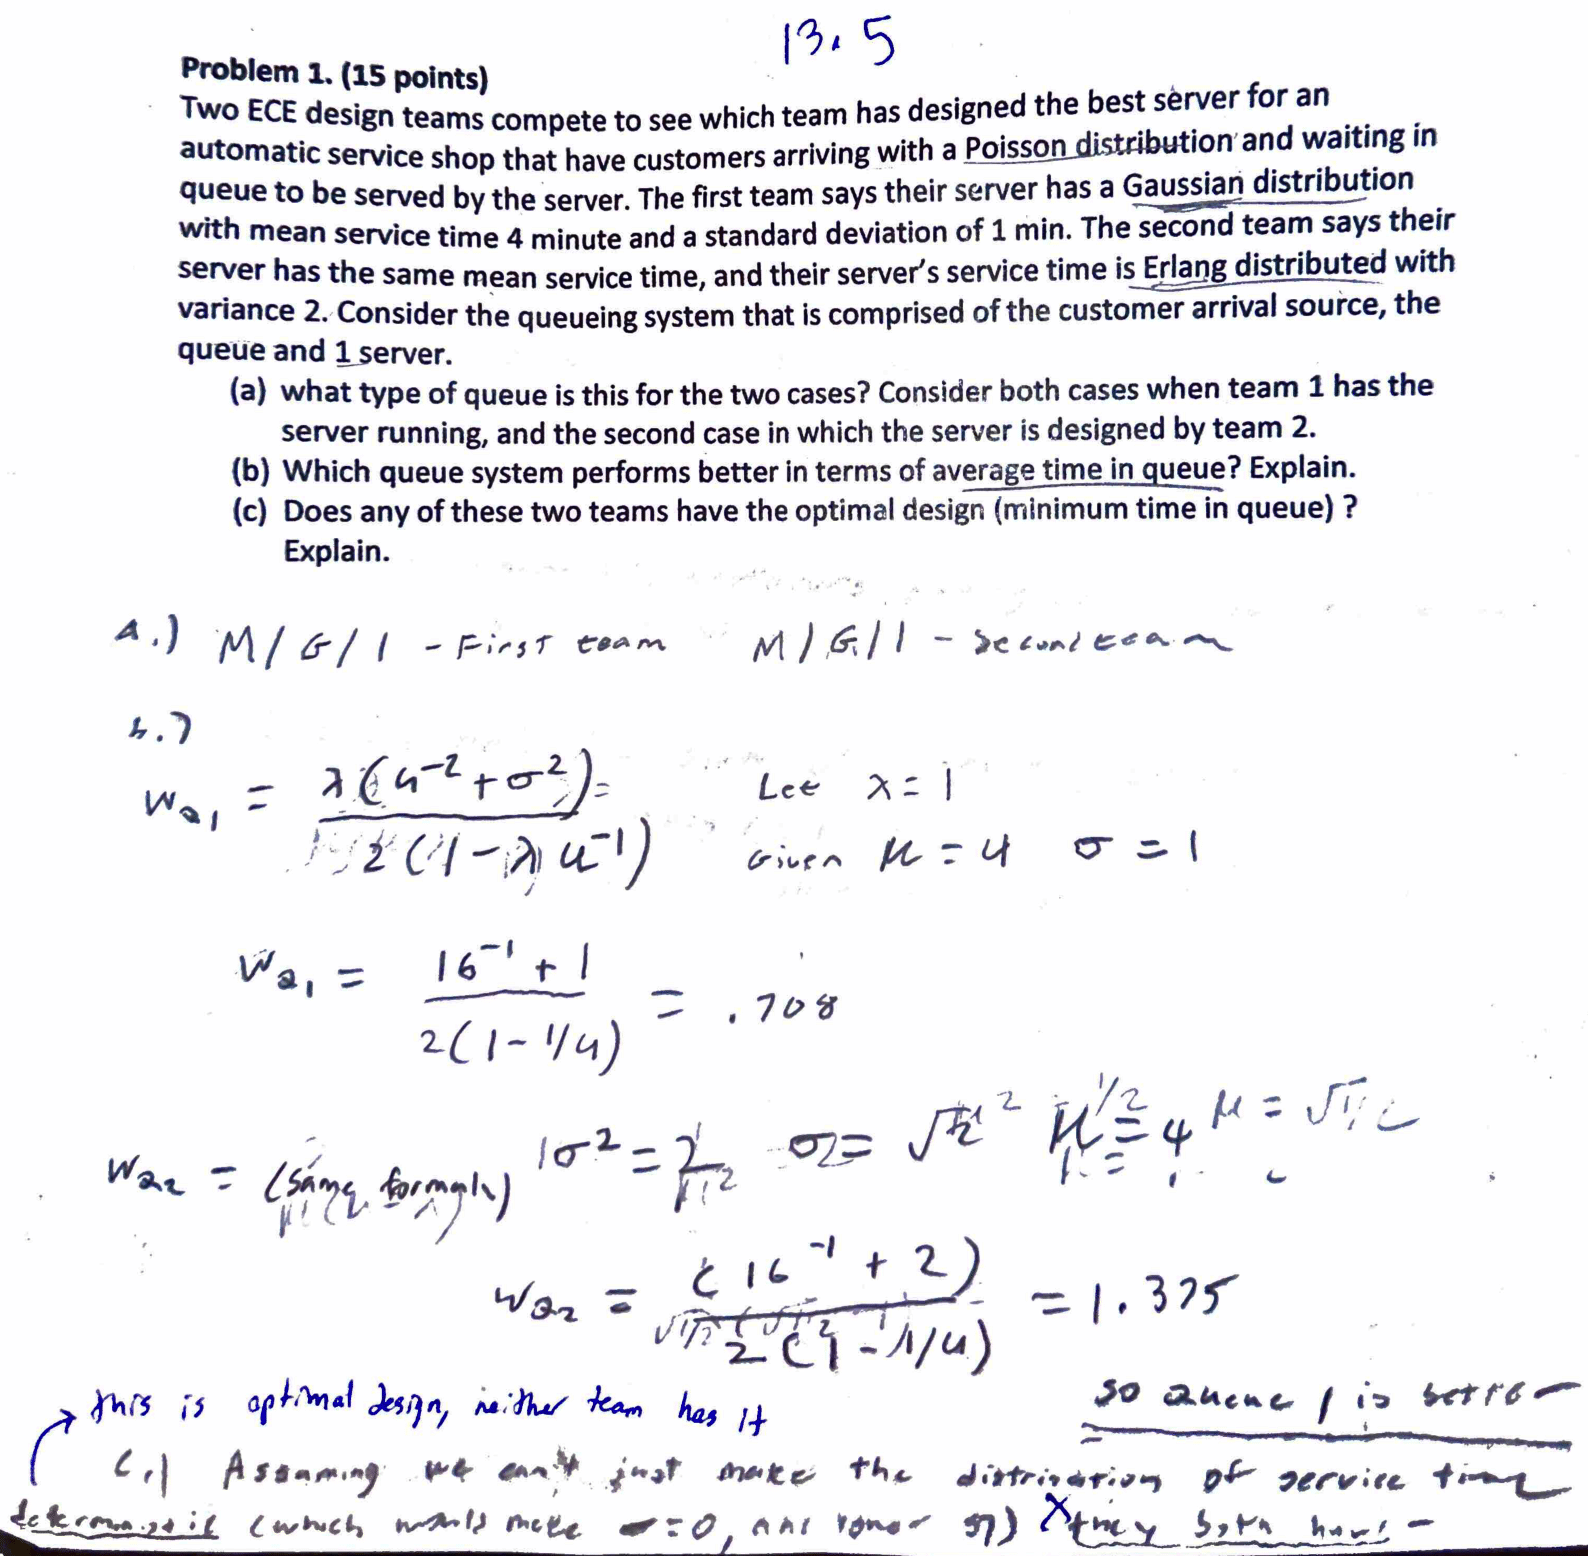 13.5
Problem 1. (15 points)
Two ECE design teams compete to see which team has designed the best server for an
automatic service shop that have customers arriving with a Poisson distribution and waiting in
queue to be served by the server. The first team says their server has a Gaussian distribution
with mean service time 4 minute and a standard deviation of 1 min. The second team says their
server has the same mean service time, and their server's service time is Erlang distributed with
variance 2. Consider the queueing system that is comprised of the customer arrival source, the
queue and 1 server.
(a) what type of queue is this for the two cases? Consider both cases when team 1 has the
server running, and the second case in which the server is designed by team 2.
(b) Which queue system performs better in terms of average time in queue? Explain.
(c) Does any of these two teams have the optimal design (minimum time in queue) ?
Explain.
A.) M/G/1 - First team M/G/1 - Second team
b.)
WQ1 = λ(μ^-2 + σ^2) / 2(1-λμ^-1) Let λ = 1
Given μ = 4 σ = 1
WQ1 = 16^-1 + 1 / 2(1 - 1/4) = .708
WQ2 = (same formula) σ^2 = 2
WQ2 = (16^-1 + 2) / 2(1 - 1/4) = 1.375
so queue 1 is better
this is optimal design, neither team has it
C.) Assuming we can't just make the distribution of service time
deterministic (which would make σ=0, they both have